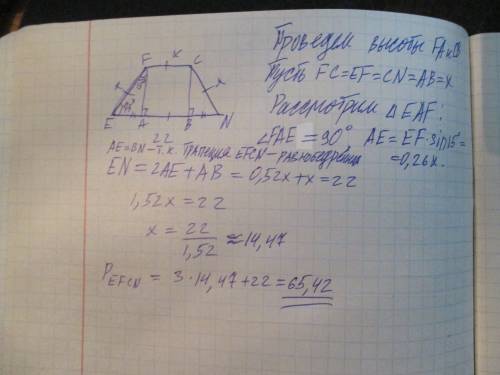 Проведем высоты FA и CB
Пусть FC=EF=CN=AB=x
Рассмотрим △EAF:
∠FAE=90° AE=EF·sin15=
=0,26x.
F x C
x x
E A B N
22
AE=BN-т.к. трапеция EFCN-равнобедренная
EN=2AE+AB=0,52x+x=22
1,52x=22
x=22/1,52≈14,47
P_EFCN=3·14,47+22=65,42